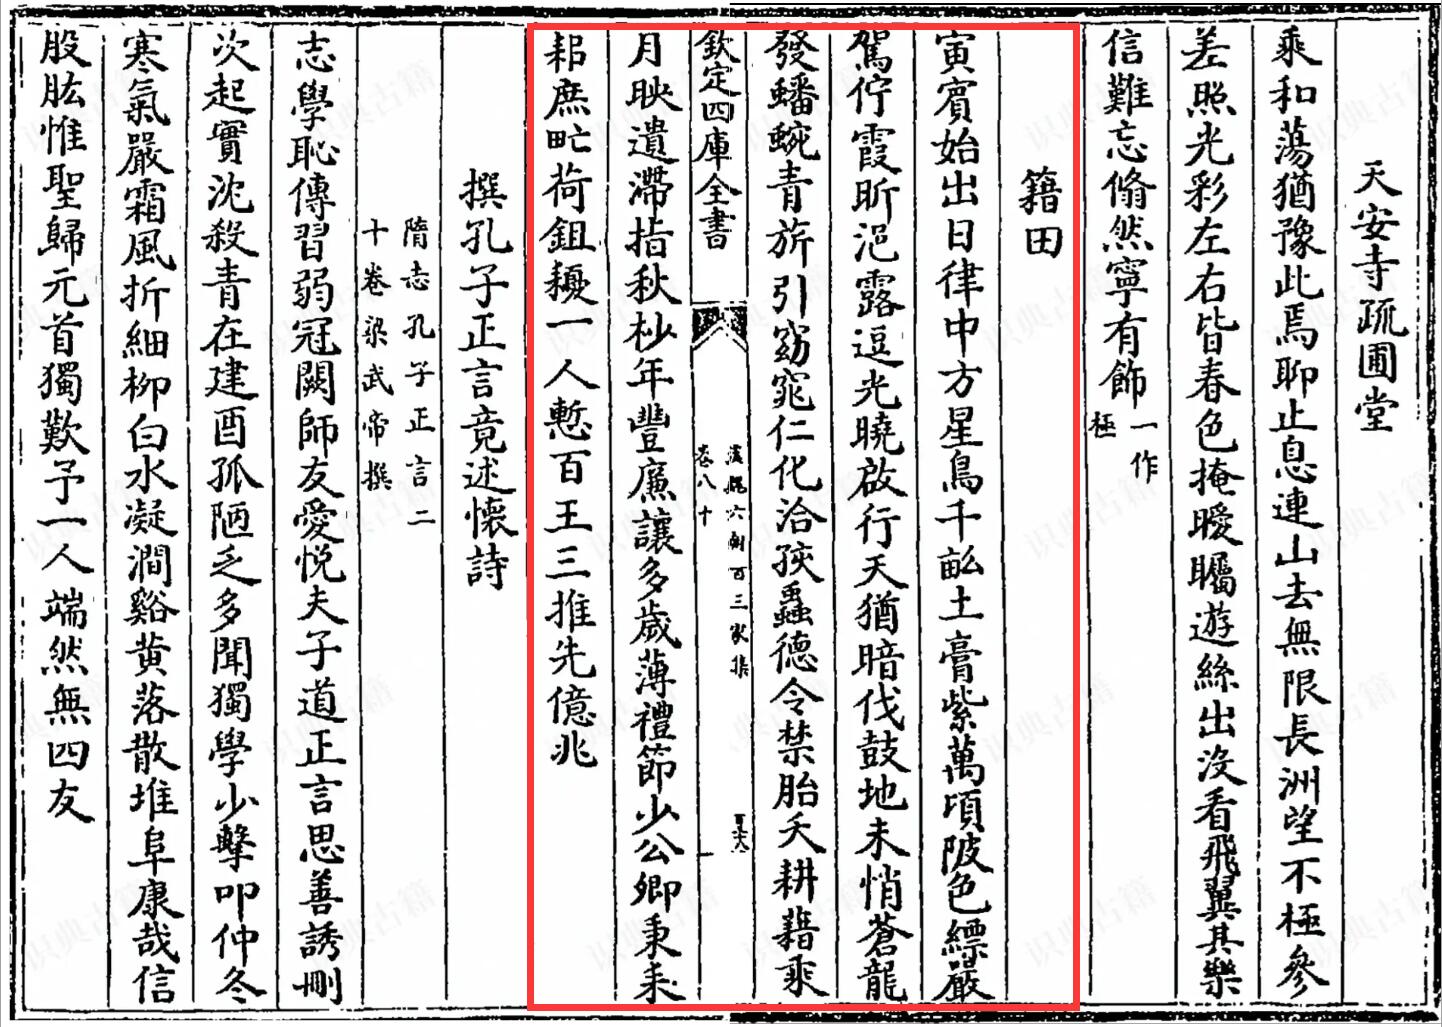 天安寺疏圃堂
乘和蕩猶豫此焉聊止息連山去無限長洲望不極參
差照光彩左右皆春色掩曖矚遊絲出沒看飛翼其樂
信難忘翛然寧有飾一作
極
籍田
寅賓始出日律中方星鳥千畝土膏紫萬頃陂色縹嚴
駕佇霞昕浥露逗光曉啟行天猶暗伐鼓地未悄蒼龍
發蟠蜿青旂引窈窕仁化洽孩蟲德令禁胎夭耕藉乘
欽定四庫全書
漢魏六朝百三家集
卷八十
月映遺滯指秋杪年豐廉讓多歲薄禮節少公卿秉耒
耜庶甿荷鉏耰一人慙百王三推先億兆
撰孔子正言竟述懷詩
隋志孔子正言二
十卷梁武帝撰
志學恥傳習弱冠闕師友愛悅夫子道正言思善誘刪
次起實沈殺青在建酉孤陋乏多聞獨學少擊叩仲冬
寒氣嚴霜風折細柳白水凝澗谿黄落散堆阜康哉信
股肱惟聖歸元首獨歎予一人端然無四友